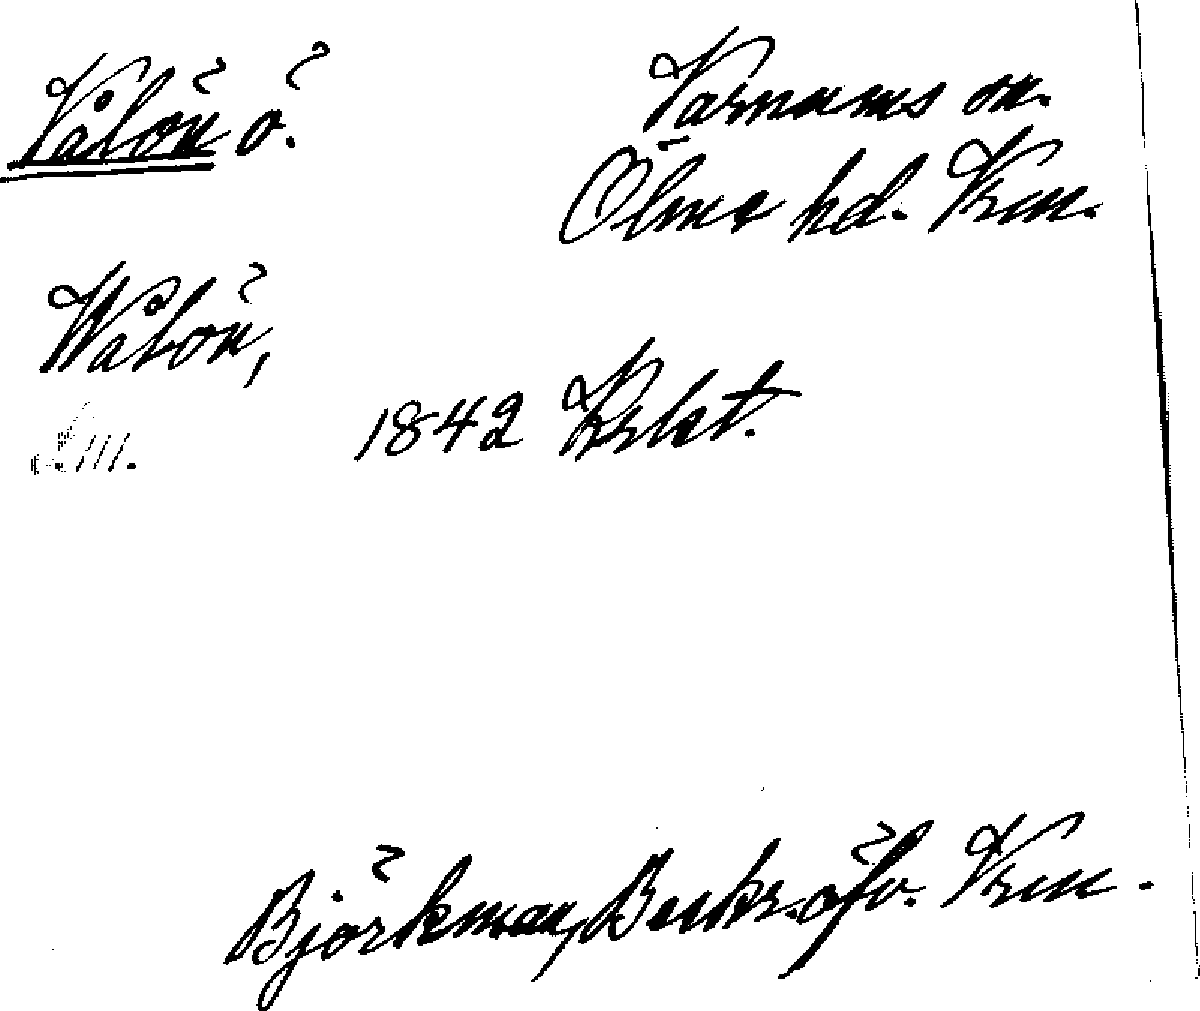 Vålön ö. Varnums sn.
Ölme hd. Vrm.
Wålön,
1842
Björkman, Beskr. öfv. Vrm.